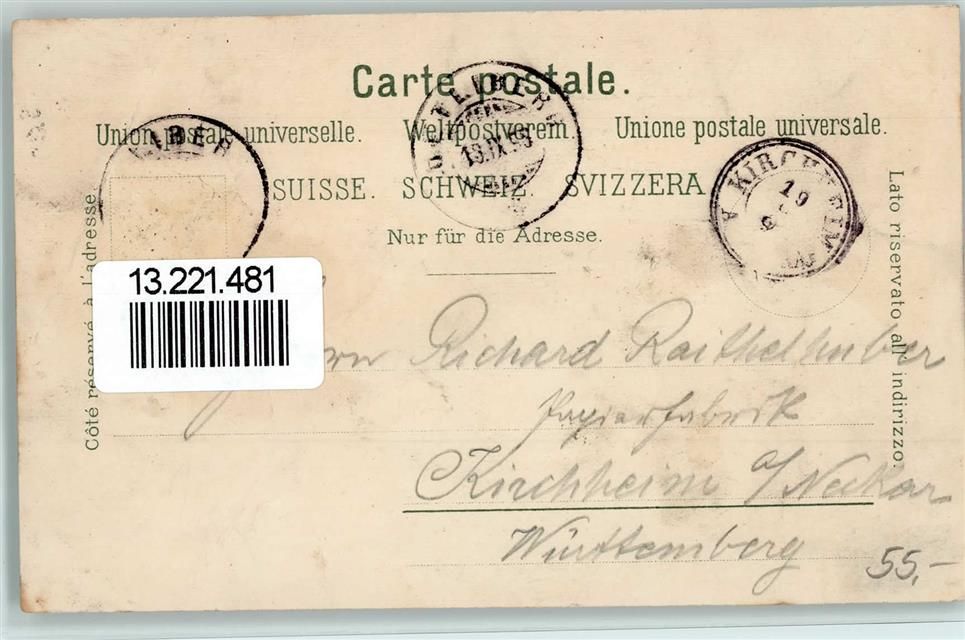 Carte postale.
Union postale universelle. Weltpostverein. Unione postale universale.
SUISSE. SCHWEIZ. SVIZZERA
Nur für die Adresse.
Côté réservé à l'adresse.
Lato riservato all' indirizzo.
LIBER
18.IX.9
KIRCHHEIM
19
13.221.481
Richard Raithelhuber
Papierfabrik
Kirchheim a/Neckar
Württemberg
55,-